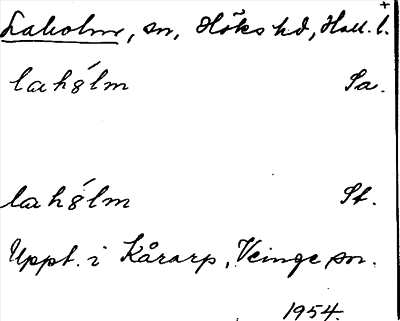 Laholm, sn, Höks hd, Hall. l. +
lahólm Sa.
lahólm St.
Uppt. i Kårarp, Veinge sn.
1954.